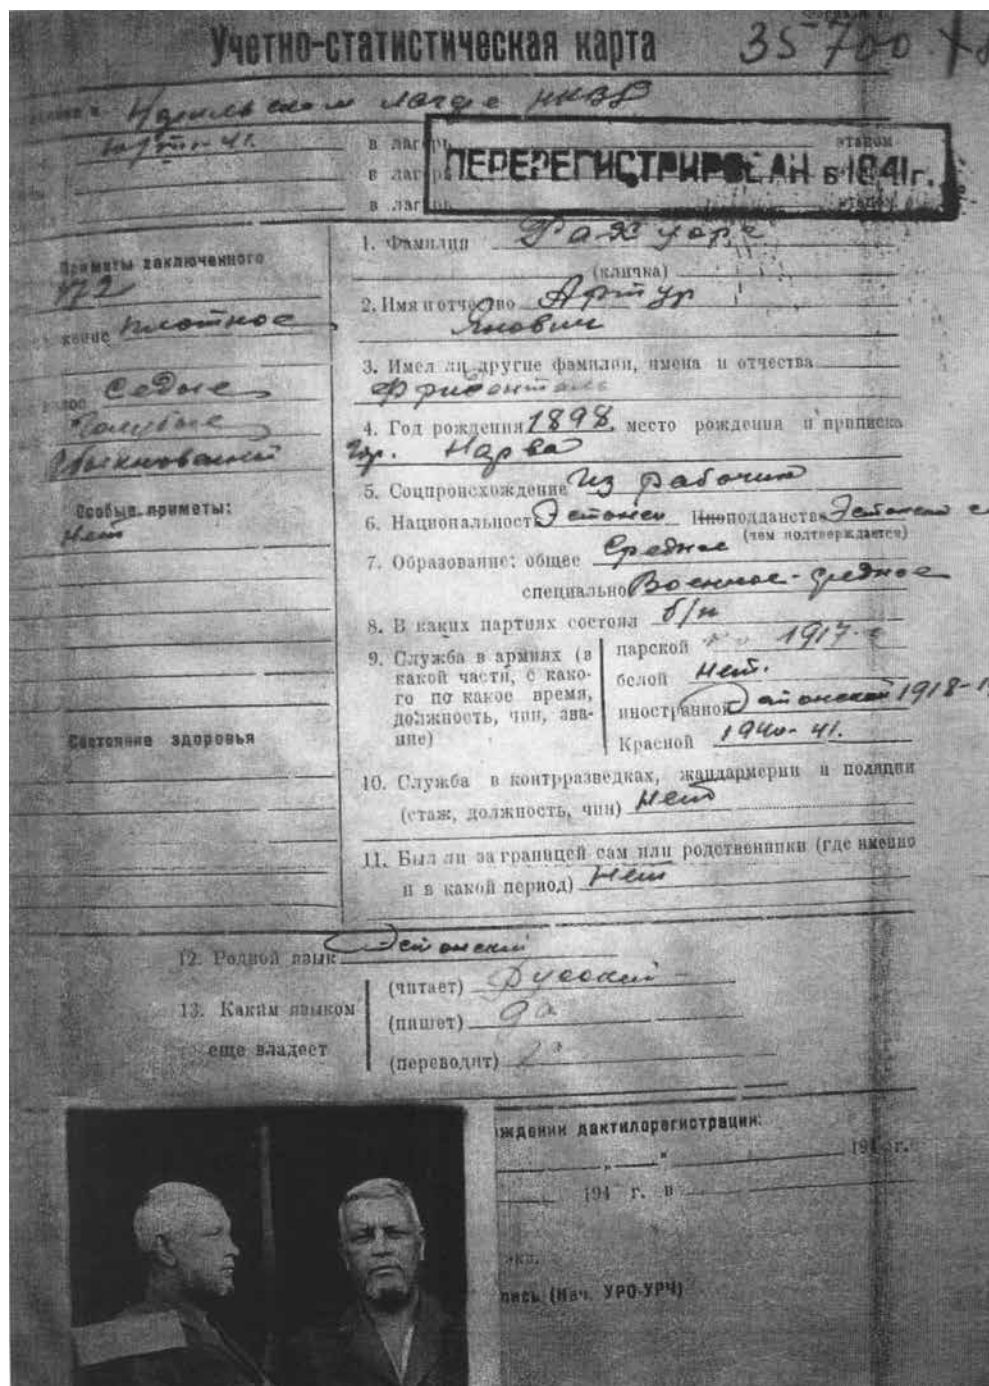 Учетно-статистическая карта 35700
Норильском лагере НКВД
41. в лагерь этапом
в лагерь
в лагерь этапом
ПЕРЕРЕГИСТРИРОВАН в 1941 г.
Приметы заключенного
172
плотное
седые
голубые
обыкновенный
Особые приметы:
Нет
Состояние здоровья
1. Фамилия
(кличка)
2. Имя и отчество Артур
Янович
3. Имел ли другие фамилии, имена и отчества
Фриденталь
4. Год рождения 1898, место рождения и приписка
гор. Нарва
5. Соцпроисхождение Из рабочих
6. Национальность Эстонец Иноподданства
(чем подтверждается)
7. Образование: общее Среднее
специально Военное-среднее
8. В каких партиях состоял б/п
9. Служба в армиях (в какой части, с како-го по какое время, должность, чин, зва-ние)
царской 1917
белой Нет.
иностранной Эстонской 1918-1
Красной 1940-41.
10. Служба в контрразведках, жандармерии и полиции
(стаж, должность, чин) Нет
11. Был ли за границей сам или родственники (где именно
и в какой период) Нет
12. Родной язык Эстонский
13. Каким языком
еще владеет
(читает) Русский
(пишет) да
(переводит) да
ождении дактилорегистрации:
" " 194 г.
194 г. в
пись (Нач. УРО-УРЧ)